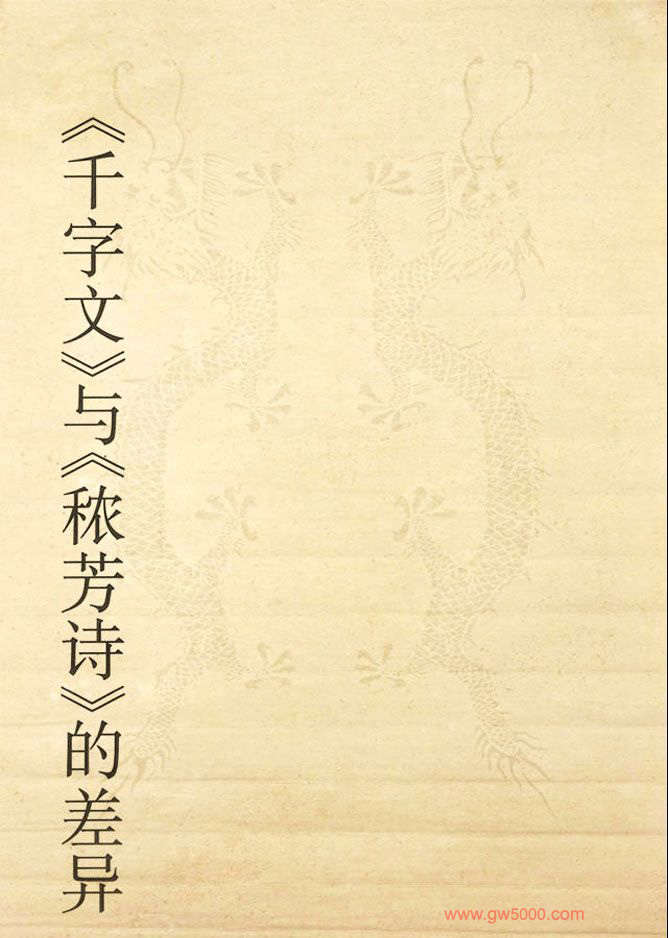 《千字文》与《秾芳诗》的差异
www.gw5000.com